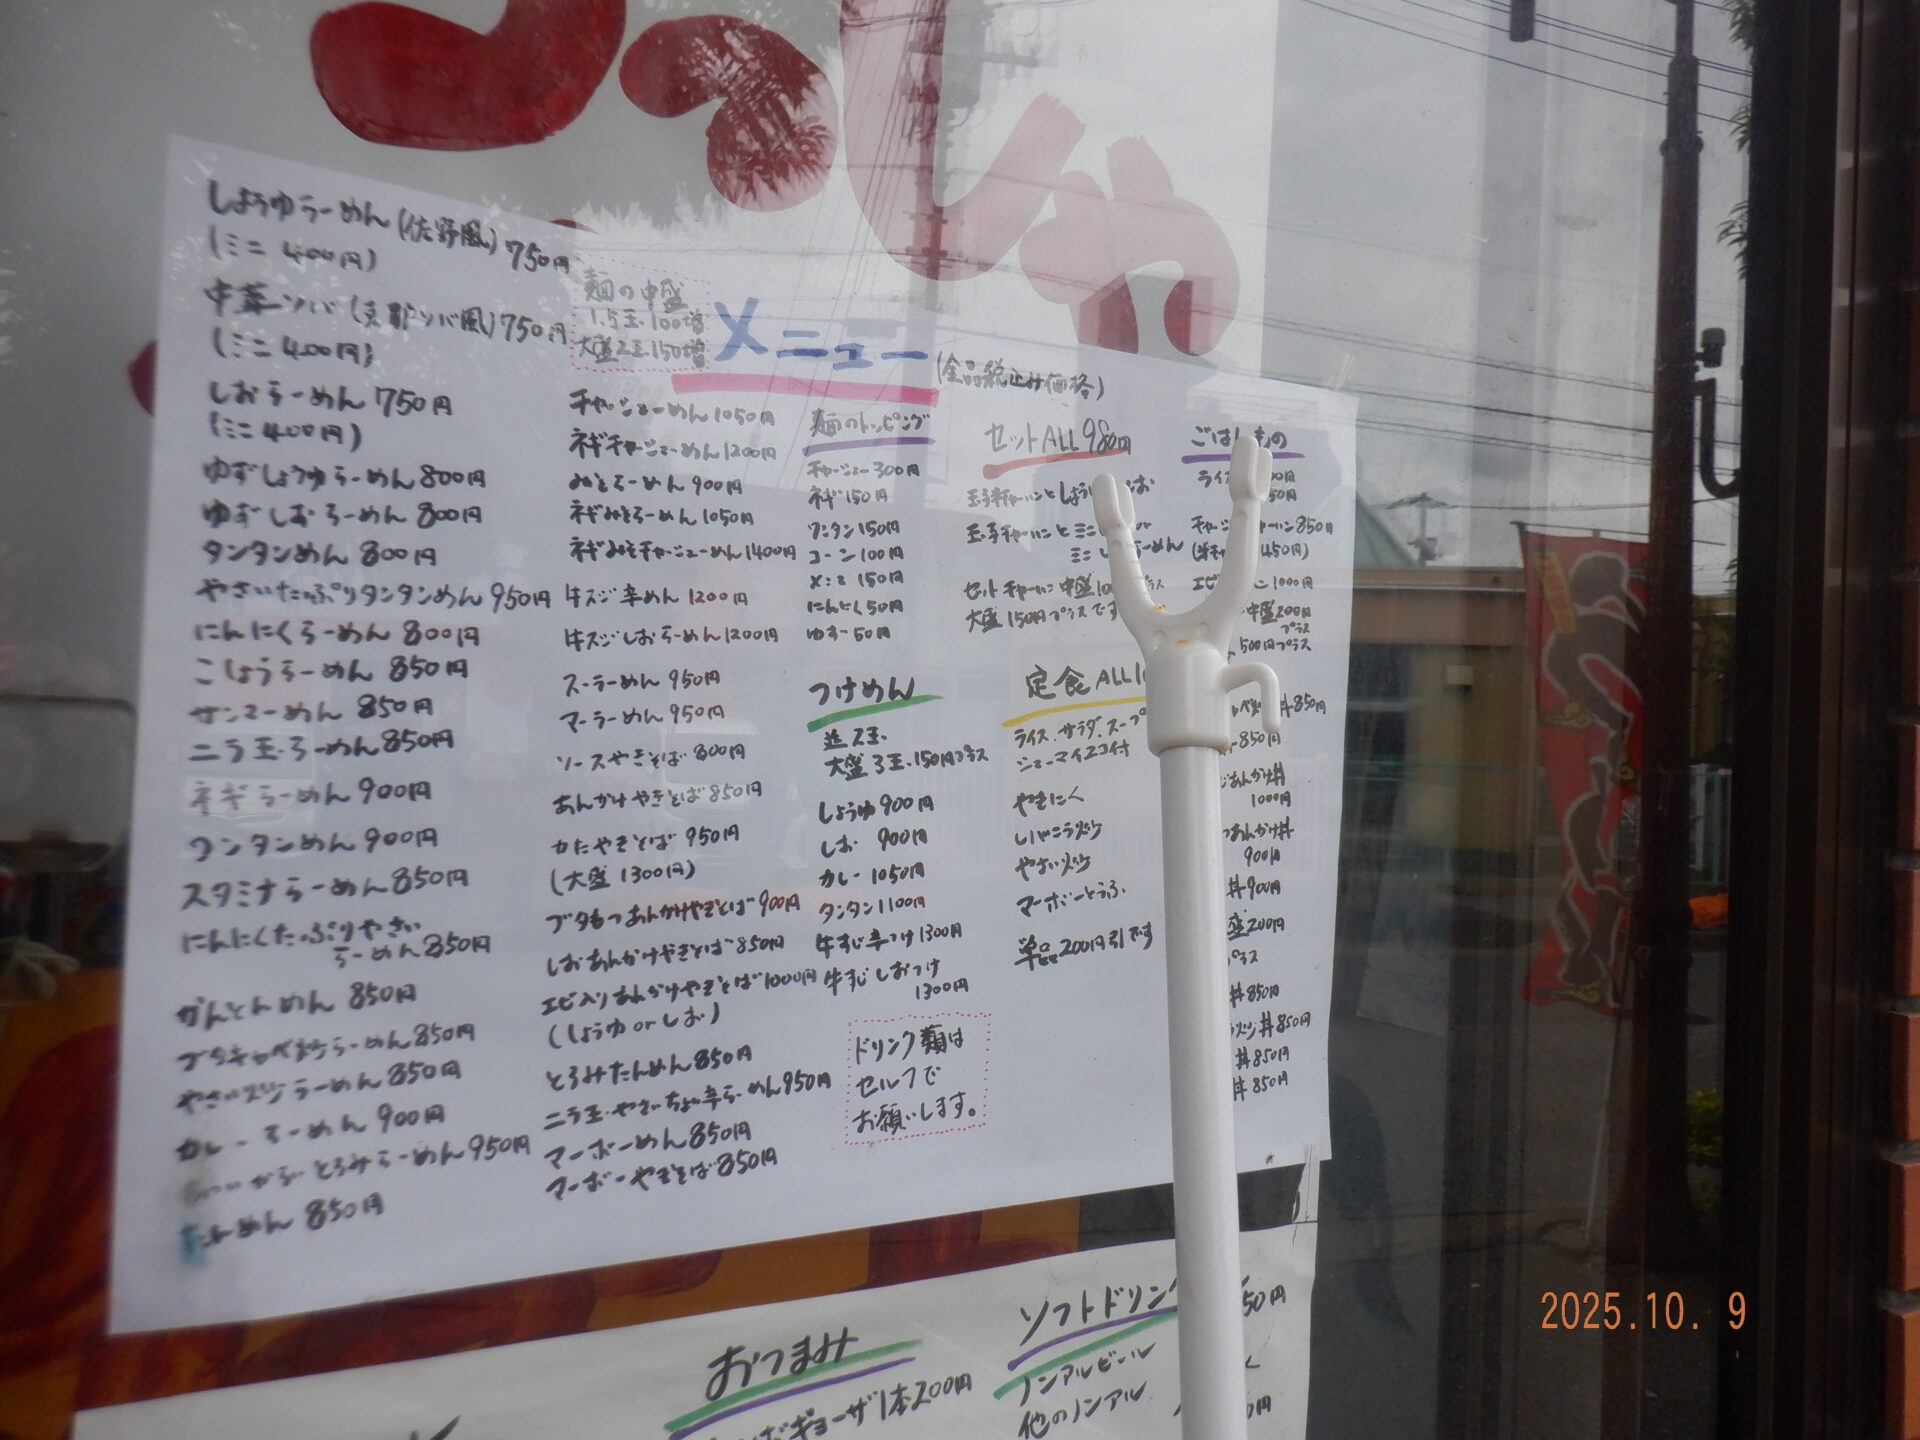 しょうゆらーめん(佐野風)750円
(ミニ 400円)
中華ソバ(京都ソバ風)750円
(ミニ400円)
しおらーめん 750円
(ミニ400円)
ゆずしょうゆらーめん 800円
ゆずしおらーめん 800円
タンタンめん 800円
やさいたっぷりタンタンめん 950円
にんにくらーめん 800円
こしょうらーめん 850円
サンマーめん 850円
ニラ玉らーめん 850円
ネギらーめん 900円
ワンタンめん 900円
スタミナらーめん 850円
にんにくたっぷりやさい
らーめん 850円
かんとんめん 850円
ブタキャベ炒らーめん 850円
やさい炒らーめん 850円
カレーらーめん 900円
とろみらーめん 950円
めん 850円
麺の中盛
1.5玉 100増
大盛2玉 150増
メニュー
(全品税込み価格)
チャーシューめん 1050円
ネギチャーシューめん 1200円
みそらーめん 900円
ネギみそらーめん 1050円
ネギみそチャーシューめん 1400円
牛スジ辛めん 1200円
牛スジしおらーめん 1200円
スーラーめん 950円
マーラーめん 950円
ソースやきそば 800円
あんかけやきそば 850円
かたやきそば 950円
(大盛 1300円)
ブタもつあんかけやきそば 900円
しおあんかけやきそば 850円
エビ入りあんかけやきそば 1000円
(しょうゆ or しお)
とろみたんめん 850円
ニラ玉やさいちょい辛らーめん 950円
マーボーめん 850円
マーボーやきそば 850円
麺のトッピング
チャーシュー 300円
ネギ 150円
ワンタン 150円
コーン 100円
メンマ 150円
にんにく 50円
ゆず 50円
つけめん
並 2玉
大盛 3玉 150円プラス
しょうゆ 900円
しお 900円
カレー 1050円
タンタン 1100円
牛すじ辛つけ 1300円
牛すじしおつけ
1300円
ドリンク類は
セルフで
お願いします。
セットALL980円
玉子チャーハンとしょう しお
玉子チャーハンとミニ or
ミニし らーめん
セットチャーハン 中盛 プラス
大盛 150円プラスです
定食ALL
ライス、サラダ、スープ
シューマイ2コ付
やきにく
レバニラ炒
やさい炒
マーボーとうふ
単品200円引です
ごはんもの
ライス 00円
50円
チャーシュー ャーハン 850円
(半チャ 450円)
エビ ン 1000円
中盛200円
プラス
500円プラス
丼 850円
850円
あんかけ丼
1000円
あんかけ丼
900円
丼 900円
盛 200円
プラス
丼 850円
炒丼 850円
丼 850円
丼 850円
おつまみ
ギョーザ1本200円
ソフトドリンク 50円
ノンアルビール
他のノンアル 円
2025.10. 9